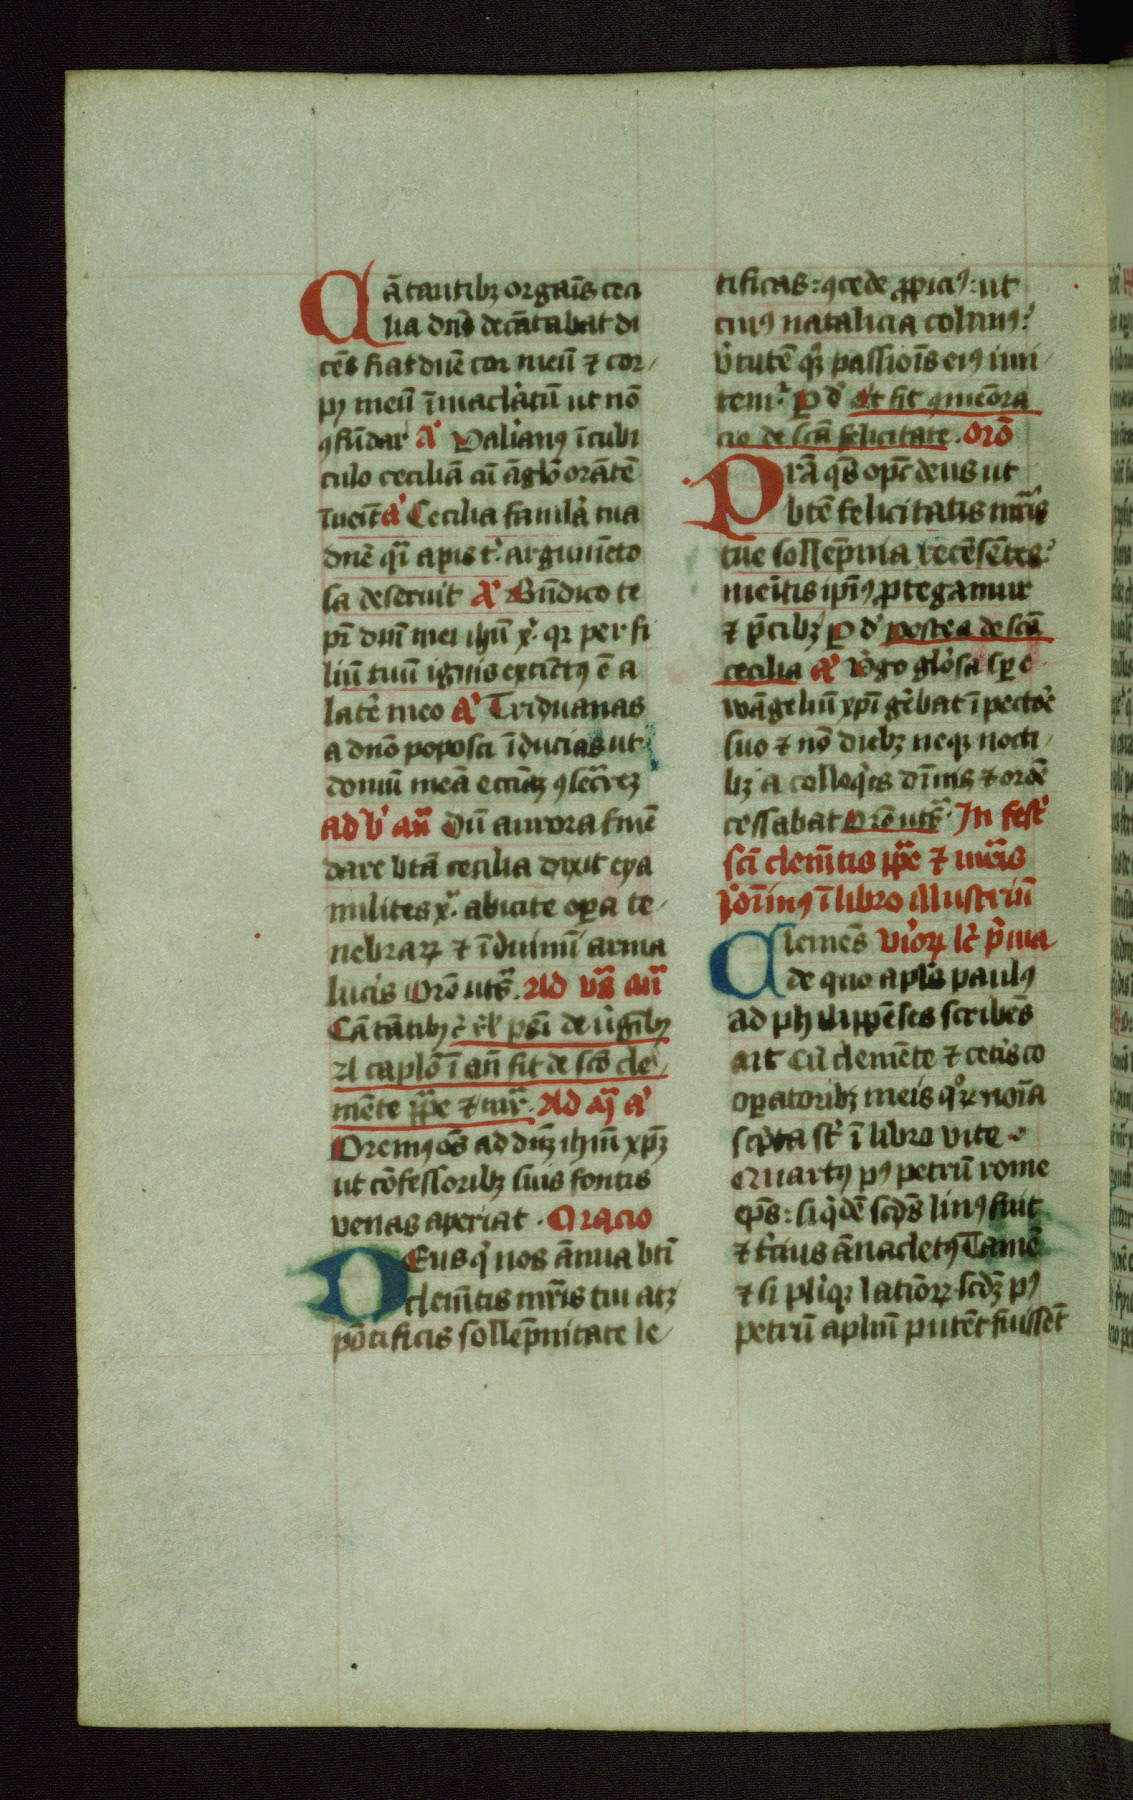 Cātantibꝫ orgaīs ceci
lia dn̄o decātabat di
cēs fiat dn̄e cor meū ⁊ cor
pꝰ meū īmaclatū ut nō
ꝯfūdar A' Valianꝰ ī cubi
culo ceciliā cū āglo orātē
īueīt A' Cecilia famla tua
dn̄e q̄i apis t' argumēto
sa deseruit A' Bn̄dico te
pr̄ dn̄i mei ihū x̄. qꝛ per fi
liū tuū ignis extīctꝰ ē a
late meo A' Triduanas
a dn̄o poposci īducias ut
domū meā eccīaꝫ ꝯsecrēꝫ
ad b' an̄ Dū aurora finē
daret btā cecilia dixit eya
milites x̄. abicite oꝑa te
nebraꝝ ⁊ īduīmī arma
lucis Orō ut s̄. Ad vs̄ an̄
Cātātibꝫ
caplō ī an̄ fit de scō cle
mēte ꝓpe ⁊ mr̄. Ad
Oremꝰ oēs ad dn̄ꝫ ihm̄ xp̄ꝫ
ut cōfessoribꝫ suis fontis
venas aperiat . Oracio
DEus q' nos ānua bti
clemētis mr̄is tui atꝫ
pōtificis sollēpnitate le
tificas : ꝯcede ꝓpiciꝰ : ut
cuiꝰ natalicia colimꝰ :
v'tutē qꝫ passiōis eiꝰ imi
tem' P d' Et fit ꝯmēora
cio de scā felicitate . Orō
Prā q̄s opc̄ deus ut
btē felicitatis mr̄is
tue sollēpnia recēsētes :
meītis ipīꝰ ꝓtegamur
⁊ p̄cibꝫ P d' postea de scā
cecilia A' V'go gl'osa sꝑ e
wāgeliū xp̄i g'ebat ī pectoē
suo ⁊ nō diebꝫ neqꝫ nocti
bꝫ a colloq'is dīnis ⁊ orōe
cessabat Orō ut s̄. In fest'
sc̄i clemētis ꝓpe ⁊ mr̄is
Ieroīmꝰ ī libro illustriū
Clemēs viroꝝ lc̄ p'ma
de quo apl̄s paulꝰ
ad philippēses scribēs
ait Cū clemēte ⁊ cet'is co
oꝑatoribꝫ meis q°ꝝ noīa
sc'pta st̄ ī libro vite .
Quartꝰ pꝰ petrū rome
ep̄s : siq'dē scd̄s linꝰ fuit
⁊ t'cius ānacletꝰ Tamē
⁊ si pliqꝫ latīoꝝ scd̄ꝫ pꝰ
petrū aplm̄ putēt fuissēt